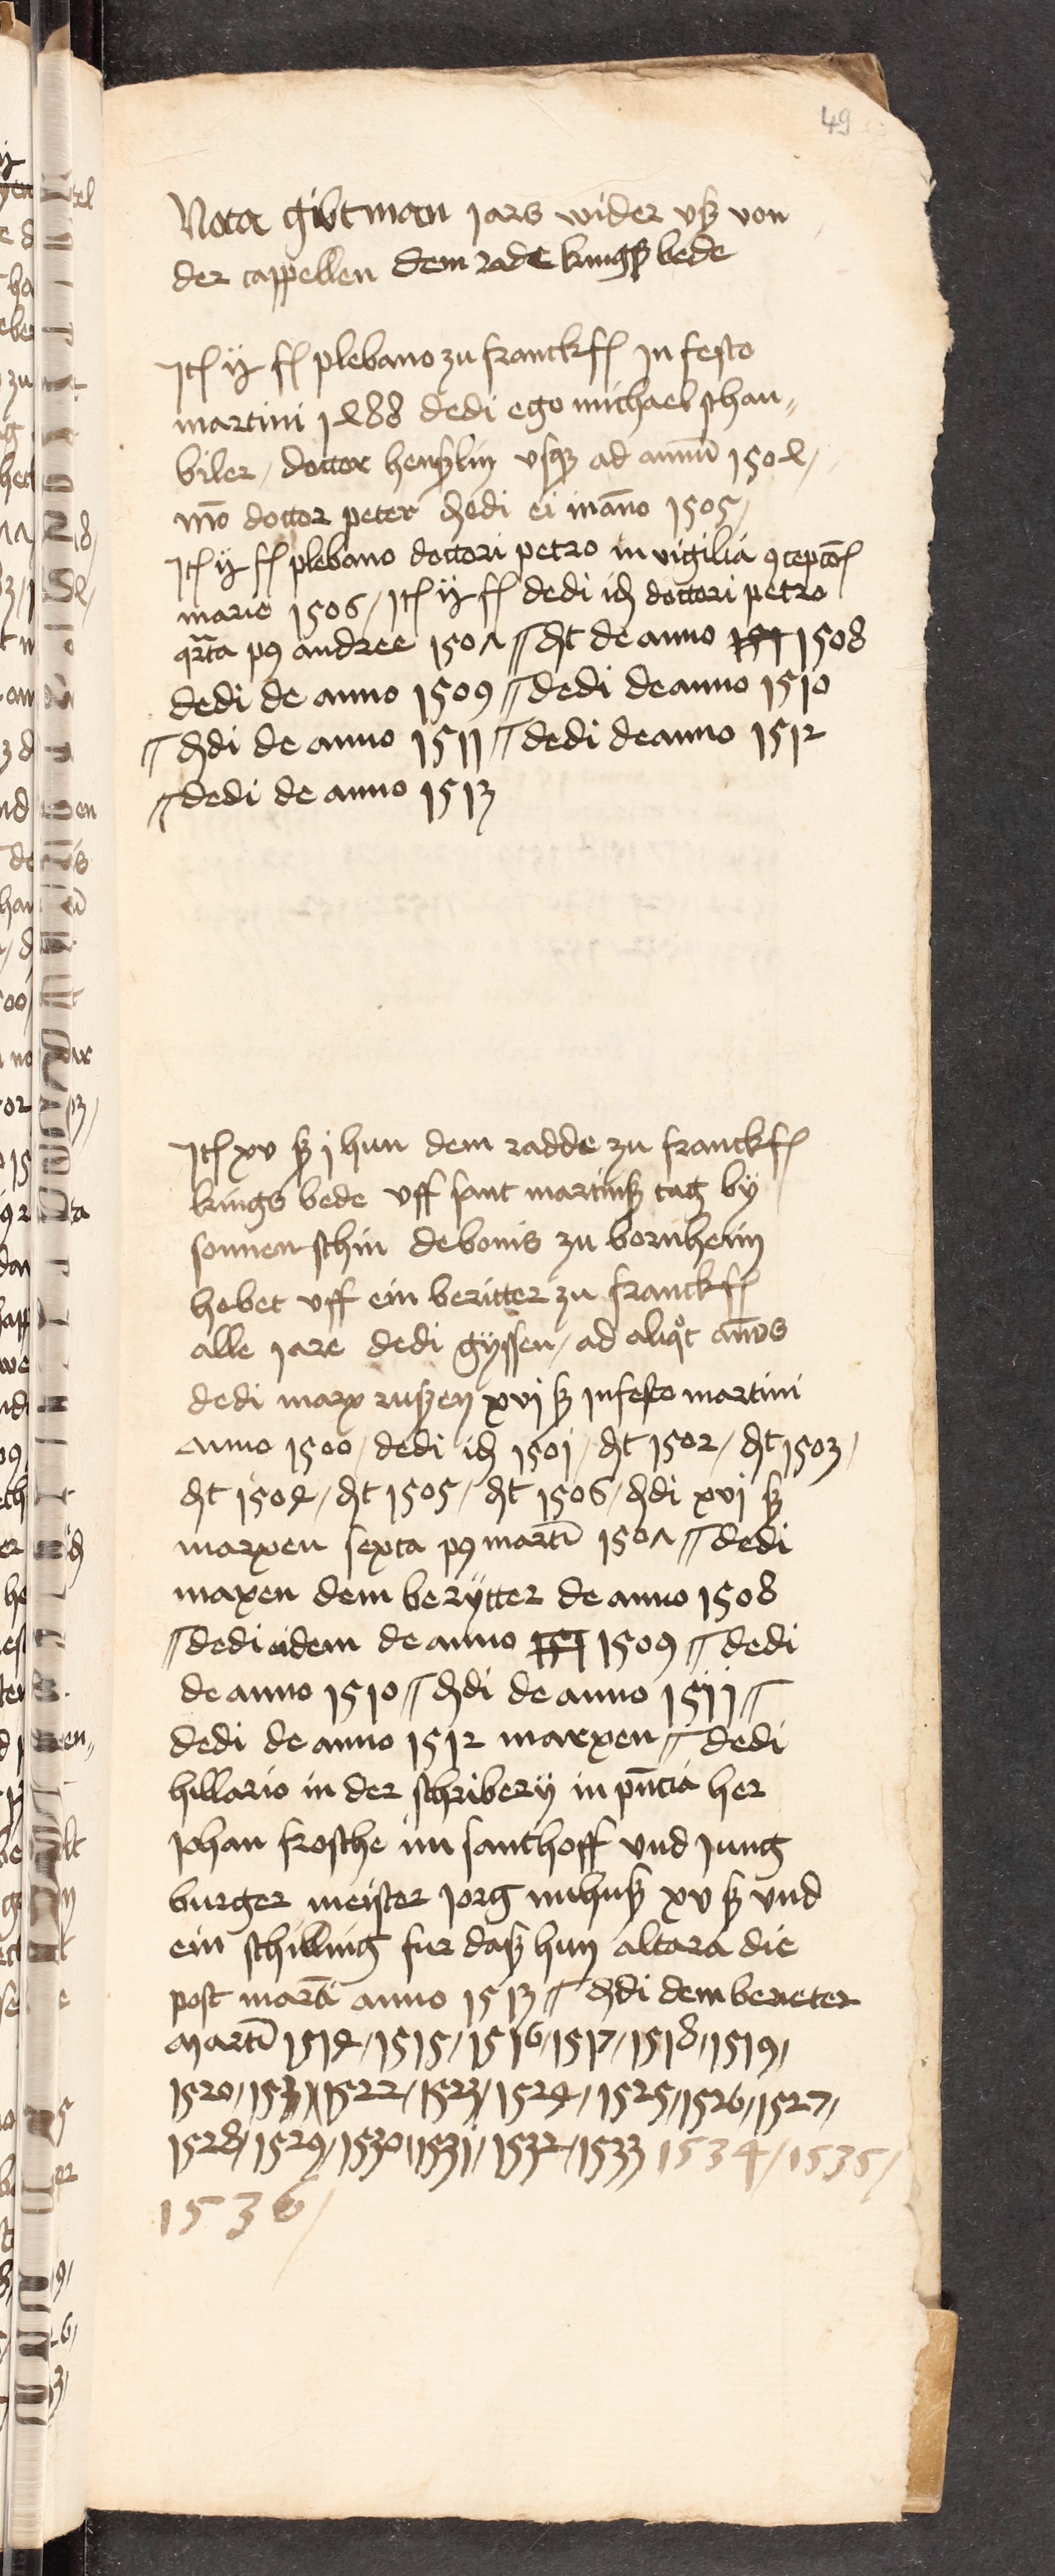 49
Nota gibt man jars wider uß von
der cappellen dem rade kungß bede
Jt[ ij ß plebano zu franckf[ in festo
martini 1488 dedi ego michael phan„
biler / doctor henßlin usqz ad annū 1504 /
mō doctor peter dedi ei in āno 1505 /
Jt[ ij ß plebano doctori petro in vigilia 9cepcō[
marie 1506 / Jt[ ij ß dedi id doctori petro
qrta p9 andree 1507 // dt de anno 1508
dedi de anno 1509 // dedi de anno 1510
// ddi de anno 1511 // dedi de anno 1512
// dedi de anno 1513
Jt[ xv ß j hun dem radde zu franckf[
kungs bede uff sant martinß tag by
sonnen schin de bonis zu bornheim
hebet uff ein beritter zu franckf[
alle jare dedi gyssen / ad aliqot annos
dedi marx rußen xvj ß in festo martini
Anno 1500 / dedi id 1501 / dt 1502 / dt 1503 /
dt 1504 / dt 1505 / dt 1506 / ddi xvj ß
marxen sexta p9 martī 1507 // dedi
maxen dem berytter de anno 1508
// dedi eidem de anno 1509 // dedi
de anno 1510 // ddi de anno 1511 //
dedi de anno 1512 marxen // dedi
hillario in der schribery in pn̄cia her
Johan frosche im santhoff und jung
burger meister Jorg nuhuß xv ß und
ein schilling fur daß hun altera die
post martī anno 1513 // ddi dem bereter
Martī 1514 / 1515 / 1516 / 1517 / 1518 / 1519 /
1520 / 1521 / 1522 / 1523 / 1524 / 1525 / 1526 / 1527 /
1528 / 1529 / 1530 / 1531 / 1532 / 1533 1534 / 1535 /
1536 /